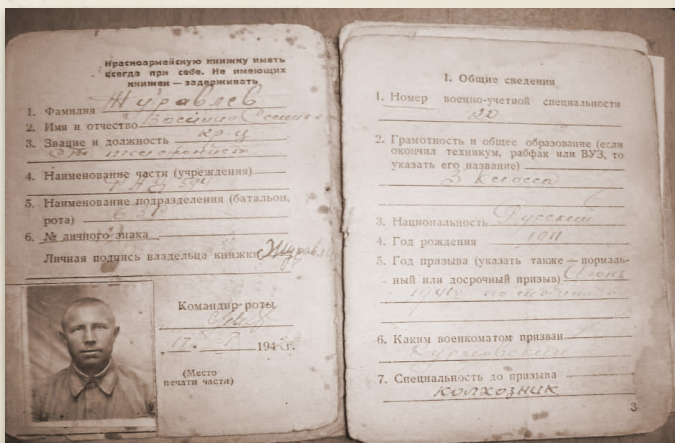 Красноармейскую книжку иметь
всегда при себе. Не имеющих
книжек — задерживать
1. Фамилия Журавлев
2. Имя и отчество Василий
3. Звание и должность кр-ц
ст. телефонист
4. Наименование части (учреждения)
5. Наименование подразделения (батальон,
рота)
6. № личного знака
Личная подпись владельца книжки Журавле
Командир роты
17 194 г.
(Место
печати части)
I. Общие сведения
1. Номер военно-учетной специальности
20
2. Грамотность и общее образование (если
окончил техникум, рабфак или ВУЗ, то
указать его название)
3 класса
3. Национальность Русский
4. Год рождения 1911
5. Год призыва (указать также — нормаль-
ный или досрочный призыв) Июнь
1941
6. Каким военкоматом призван
7. Специальность до призыва
колхозник
3